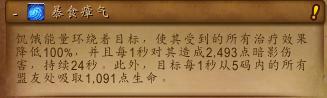 - 暴食瘴气
饥饿能量环绕着目标，使其受到的所有治疗效果
降低100%，并且每1秒对其造成2,493点暗影伤
害，持续24秒。此外，目标每1秒从5码内的所有
盟友处吸取1,091点生命。